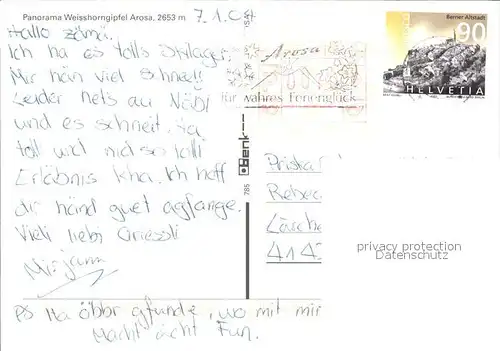 Panorama Weisshorngipfel Arosa, 2653 m
7.1.04
Hallo zäme
Ich ha es tolls Skilager.
Mir hän viel Schnee!
Leider hets au Näbl
und es schneit. ha
toll und nid so tolli
Erläbnis kha. Ich hoff
dir händ guet agfange.
Vieli liebi Griessli
Mirjam
PS Ha öbbr gfunde, wo mit mir
Macht ächt Fun.
Arosa
für wahres Ferienglück
Berner Altstadt
90
HELVETIA
785
Benk
Priska
Rebec
Lösche
414
privacy protection
Datenschutz